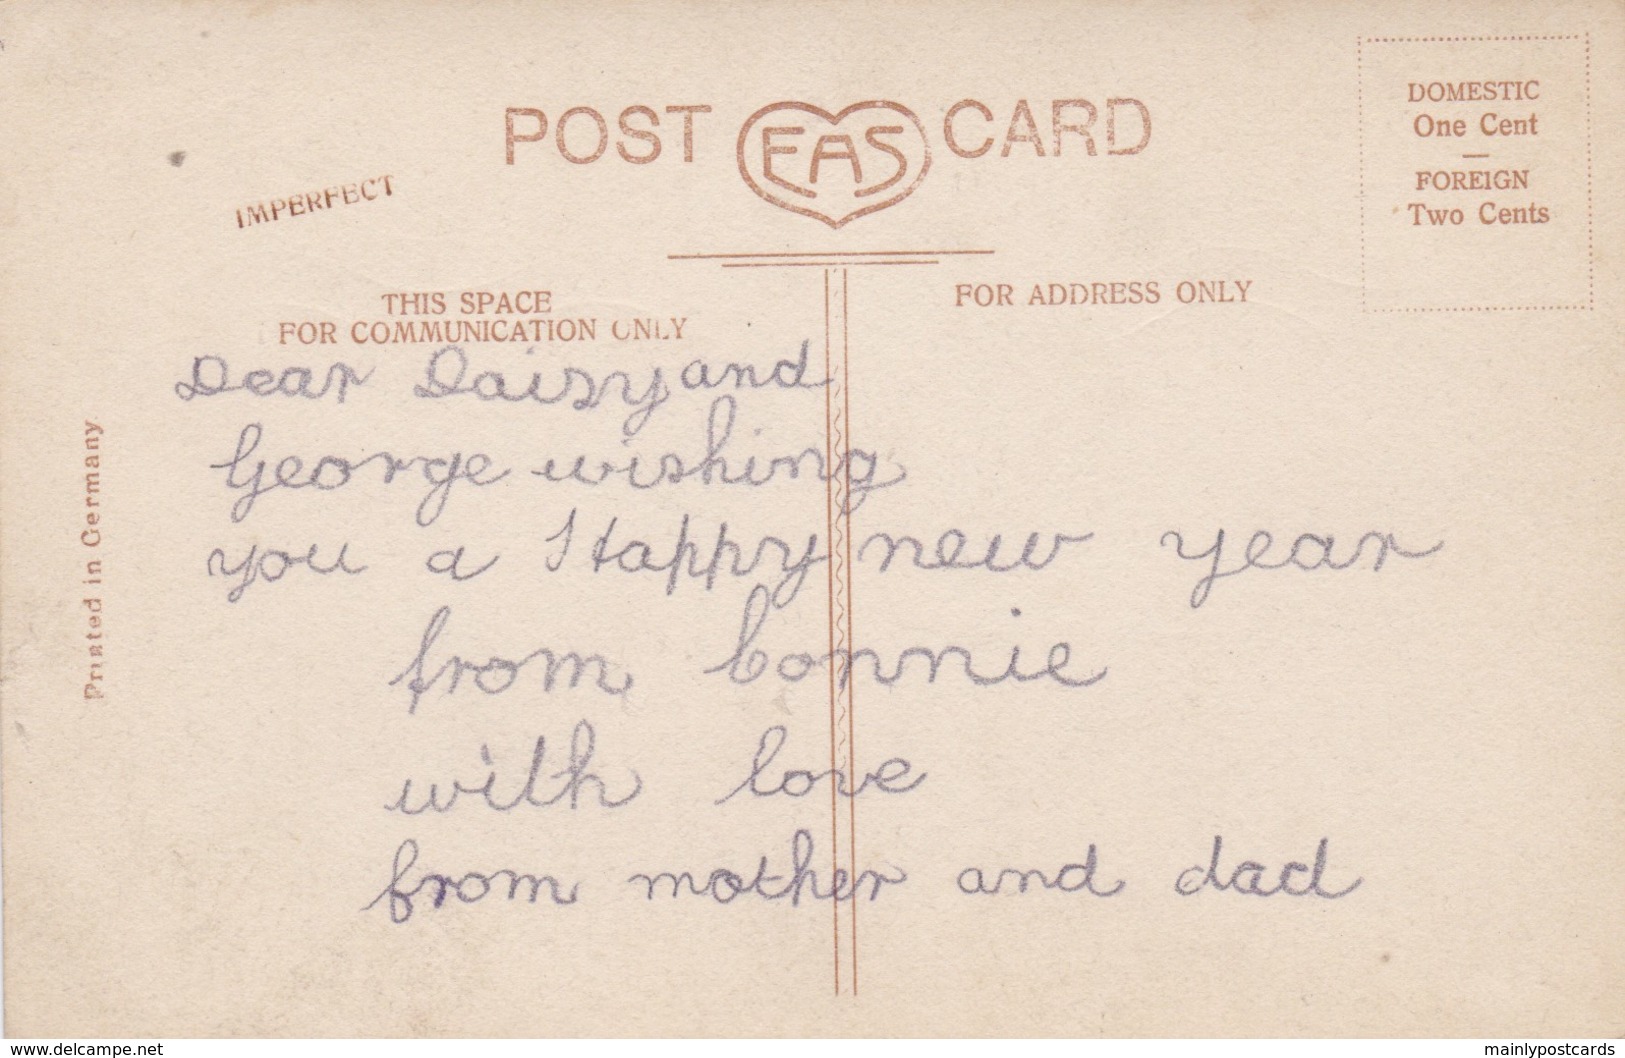 POST EAS CARD
DOMESTIC
One Cent
FOREIGN
Two Cents
IMPERFECT
THIS SPACE
FOR COMMUNICATION ONLY
FOR ADDRESS ONLY
Printed in Germany
Dear Daisy and
George wishing
you a Happy new year
from bonnie
with love
from mother and dad
www.delcampe.net
mainlypostcards